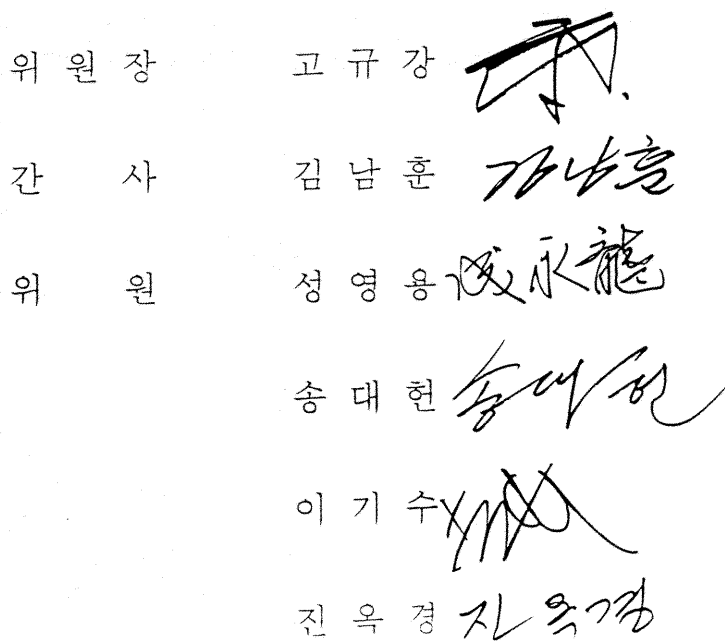 위 원 장 고 규 강
간 사 김 남 훈 김남훈
위 원 성 영 용 成永龍
송 대 헌 송대헌
이 기 수
진 옥 경 진옥경